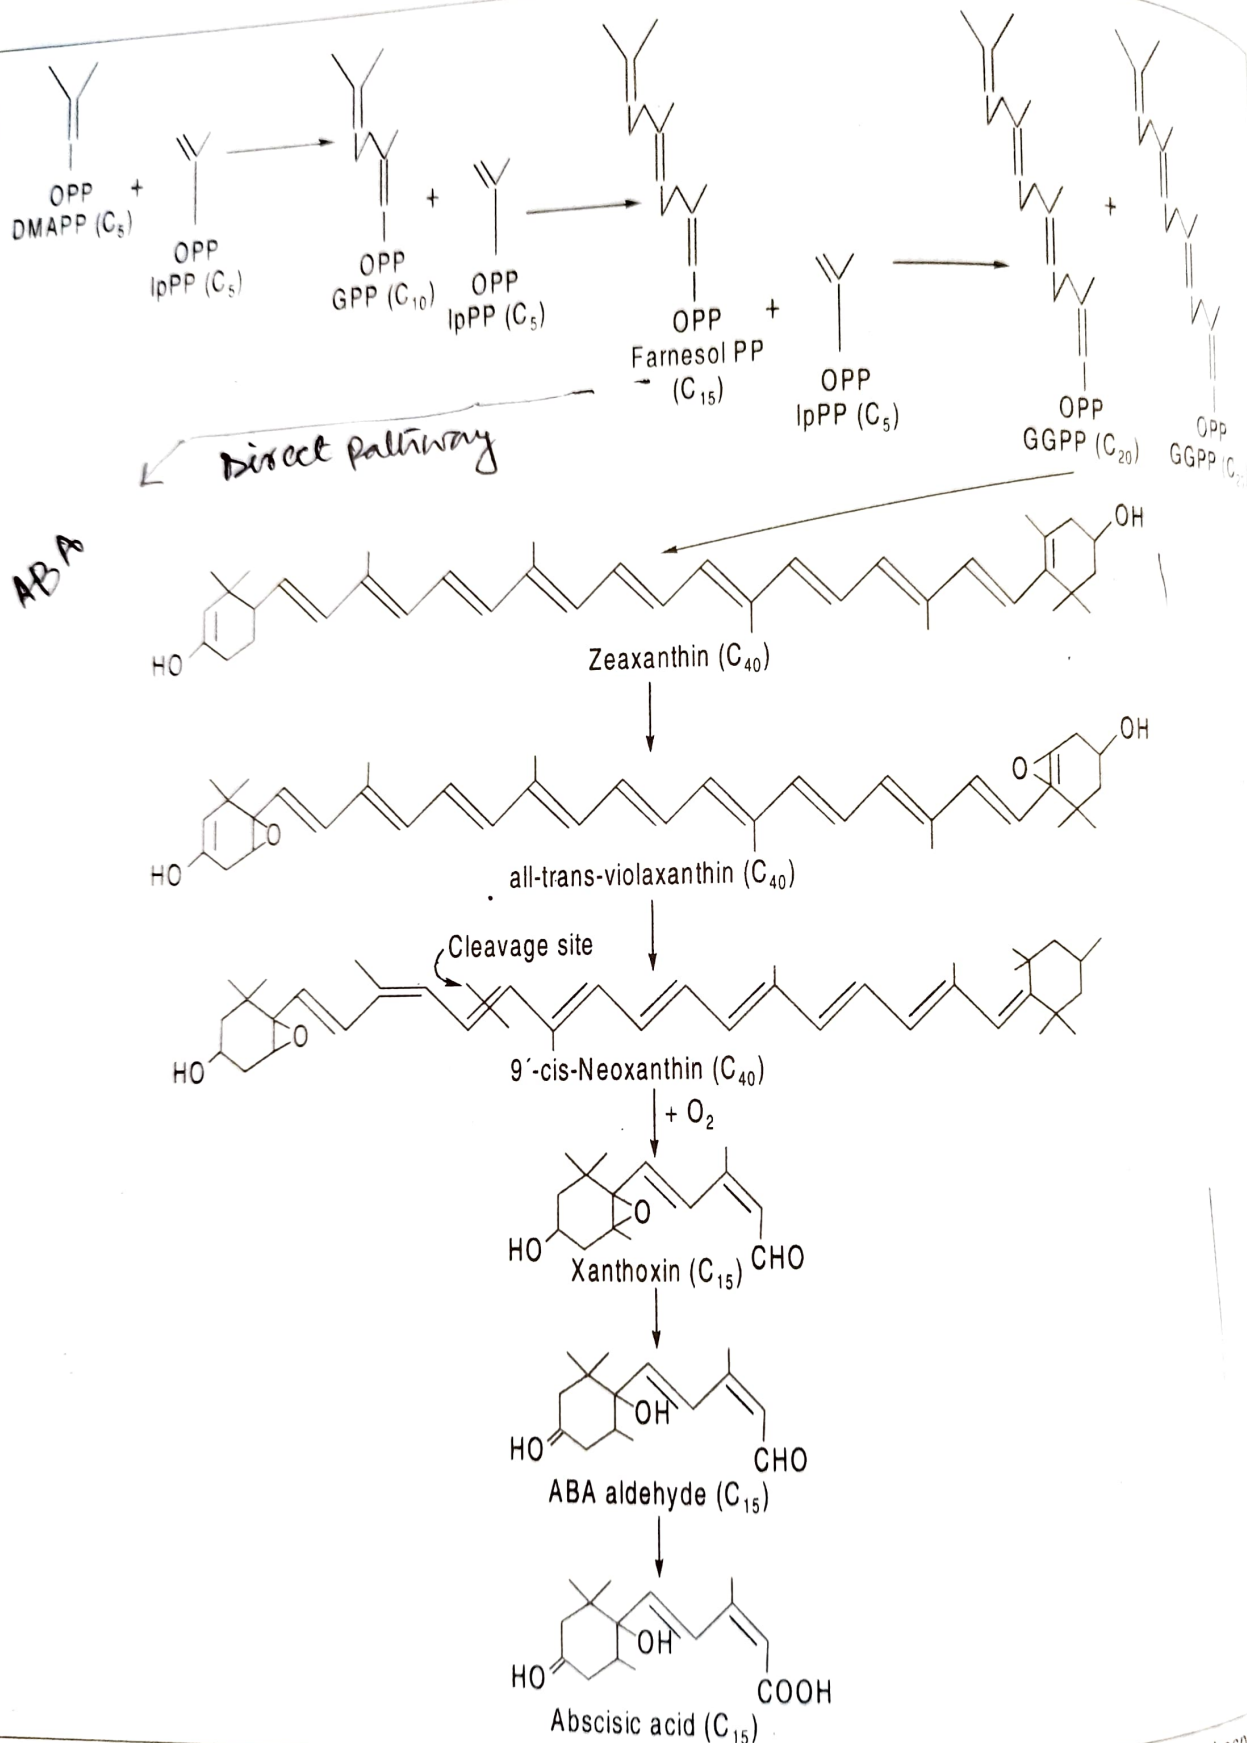 OPP
DMAPP (C₅)
+
OPP
IpPP (C₅)
OPP
GPP (C₁₀)
+
OPP
IpPP (C₅)
OPP
Farnesol PP
(C₁₅)
+
OPP
IpPP (C₅)
OPP
GGPP (C₂₀)
+
OPP
GGPP (C
Direct pathway
ABA
OH
HO
Zeaxanthin (C₄₀)
OH
O
O
HO
all-trans-violaxanthin (C₄₀)
Cleavage site
O
HO
9´-cis-Neoxanthin (C₄₀)
+ O₂
O
HO
CHO
Xanthoxin (C₁₅)
OH
HO
CHO
ABA aldehyde (C₁₅)
OH
HO
COOH
Abscisic acid (C₁₅)